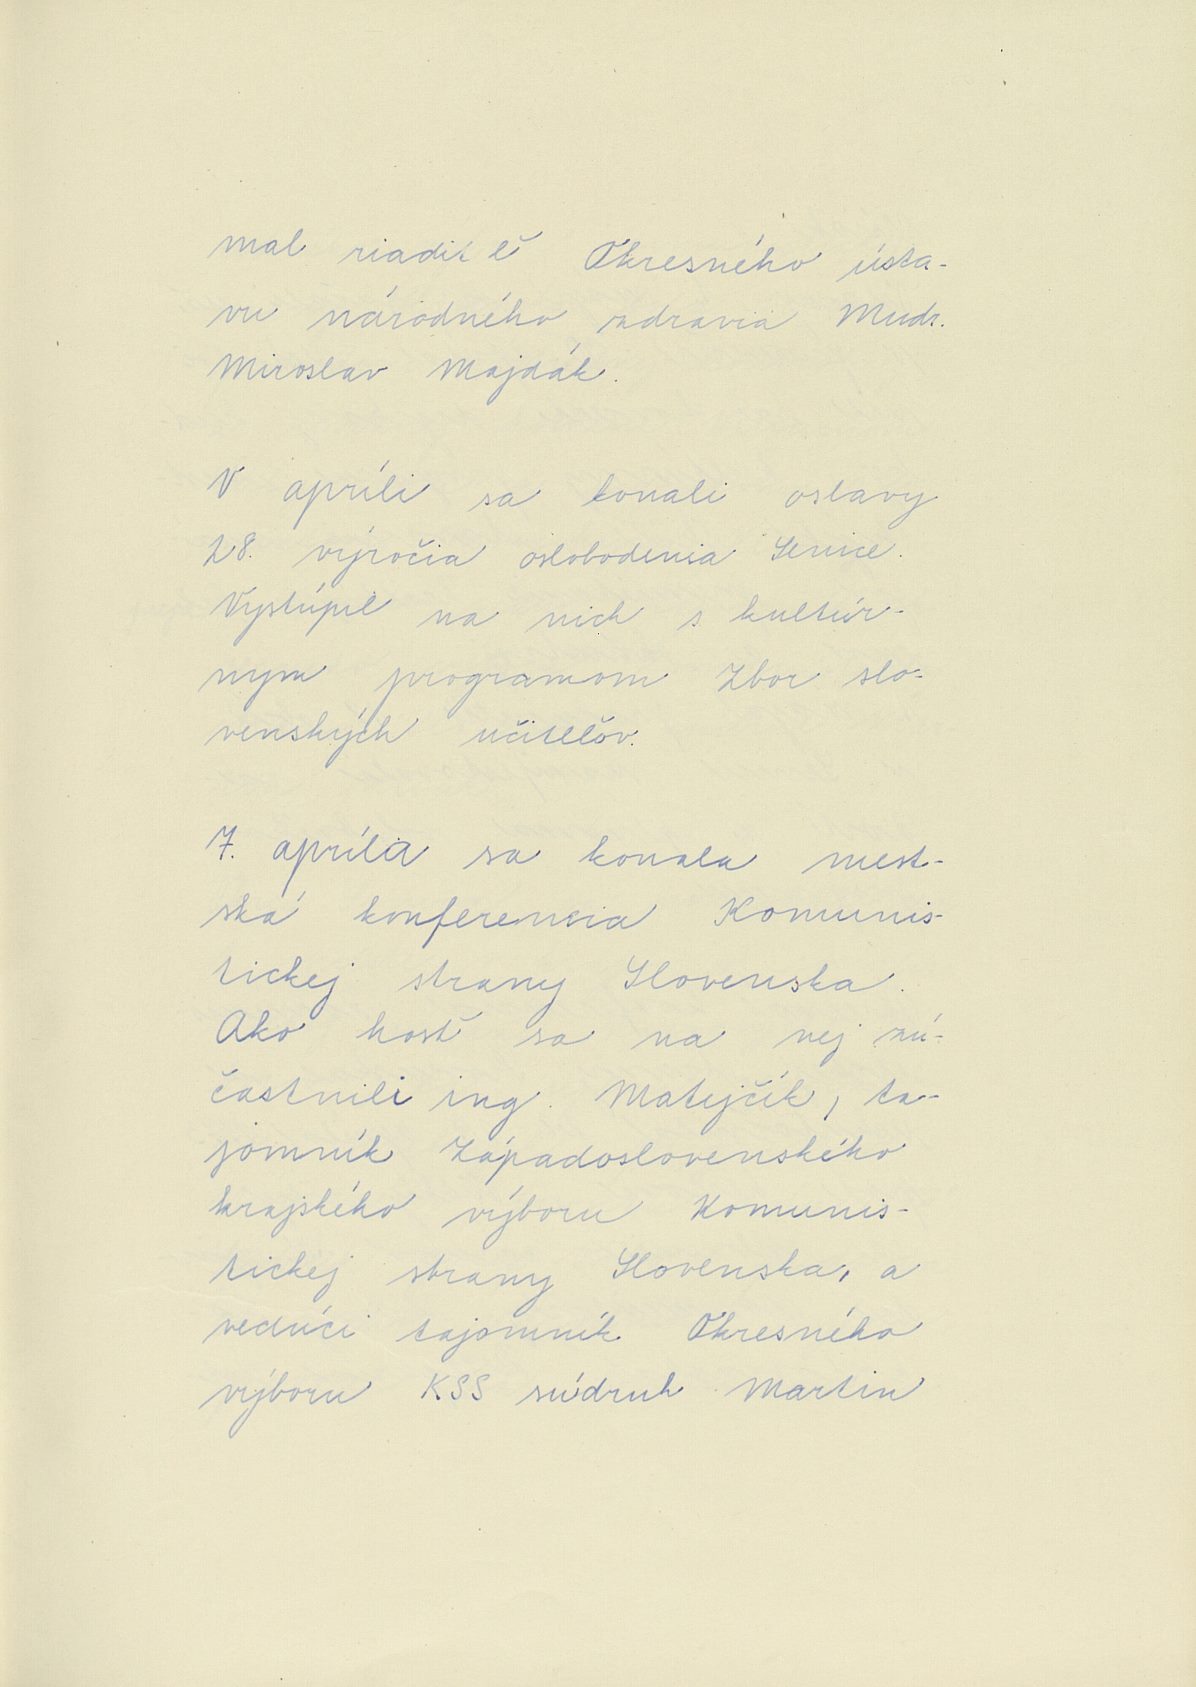 mal riaditeľ Okresného ústa-
vu národného zdravia Mudr.
Miroslav Majdák.
V apríli sa konali oslavy
28. výročia oslobodenia Senice.
Vystúpil na nich s kultúr-
nym programom Zbor slo-
venských učiteľov.
7. apríla sa konala mest-
ská konferencia Komunis-
tickej strany Slovenska.
Ako hosť sa na nej zú-
častnili ing. Matejčík, ta-
jomník Západoslovenského
krajského výboru Komunis-
tickej strany Slovenska, a
vedúci tajomník Okresného
výboru KSS súdruh Martin